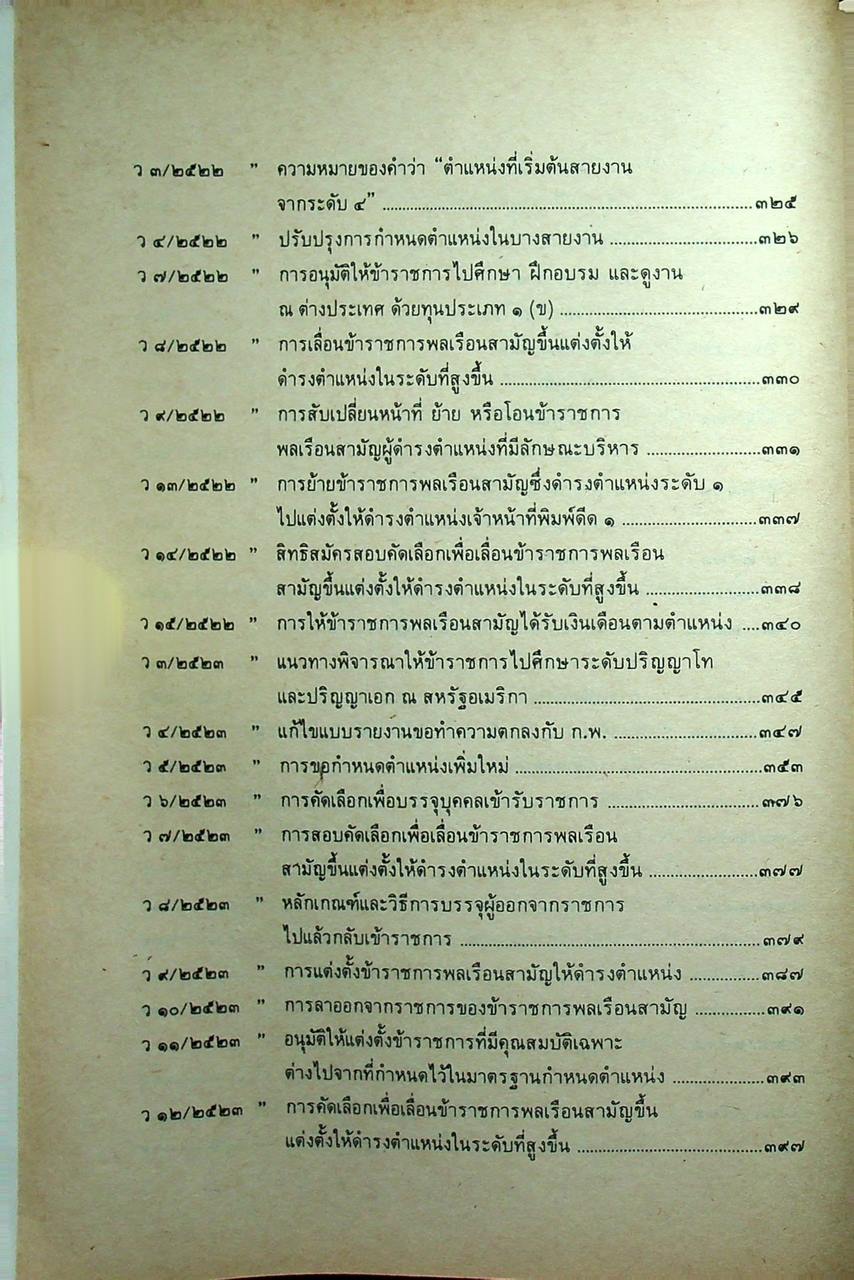 ว ๓/๒๕๒๒ ” ความหมายของคำว่า “ตำแหน่งที่เริ่มต้นสายงาน
จากระดับ ๔” ........................................................................๓๒๕
ว ๔/๒๕๒๒ ” ปรับปรุงการกำหนดตำแหน่งในบางสายงาน .............................๓๒๖
ว ๗/๒๕๒๒ ” การอนุมัติให้ข้าราชการไปศึกษา ฝึกอบรม และดูงาน
ณ ต่างประเทศ ด้วยทุนประเภท ๑ (ข) .......................................๓๒๙
ว ๘/๒๕๒๒ ” การเลื่อนข้าราชการพลเรือนสามัญขึ้นแต่งตั้งให้
ดำรงตำแหน่งในระดับที่สูงขึ้น ...................................................๓๓๐
ว ๙/๒๕๒๒ ” การสับเปลี่ยนหน้าที่ ย้าย หรือโอนข้าราชการ
พลเรือนสามัญผู้ดำรงตำแหน่งที่มีลักษณะบริหาร ......................๓๓๑
ว ๑๓/๒๕๒๒ ” การย้ายข้าราชการพลเรือนสามัญซึ่งดำรงตำแหน่งระดับ ๑
ไปแต่งตั้งให้ดำรงตำแหน่งเจ้าหน้าที่พิมพ์ดีด ๑ ..........................๓๓๗
ว ๑๔/๒๕๒๒ ” สิทธิสมัครสอบคัดเลือกเพื่อเลื่อนข้าราชการพลเรือน
สามัญขึ้นแต่งตั้งให้ดำรงตำแหน่งในระดับที่สูงขึ้น ......................๓๓๘
ว ๑๕/๒๕๒๒ ” การให้ข้าราชการพลเรือนสามัญได้รับเงินเดือนตามตำแหน่ง ....๓๔๐
ว ๓/๒๕๒๓ ” แนวทางพิจารณาให้ข้าราชการไปศึกษาระดับปริญญาโท
และปริญญาเอก ณ สหรัฐอเมริกา ............................................๓๔๕
ว ๔/๒๕๒๓ ” แก้ไขแบบรายงานขอทำความตกลงกับ ก.พ. ............................๓๔๗
ว ๕/๒๕๒๓ ” การขอกำหนดตำแหน่งเพิ่มใหม่ ................................................๓๕๓
ว ๖/๒๕๒๓ ” การคัดเลือกเพื่อบรรจุบุคคลเข้ารับราชการ .............................๓๗๖
ว ๗/๒๕๒๓ ” การสอบคัดเลือกเพื่อเลื่อนข้าราชการพลเรือน
สามัญขึ้นแต่งตั้งให้ดำรงตำแหน่งในระดับที่สูงขึ้น .....................๓๗๗
ว ๘/๒๕๒๓ ” หลักเกณฑ์และวิธีการบรรจุผู้ออกจากราชการ
ไปแล้วกลับเข้าราชการ ..........................................................๓๗๙
ว ๙/๒๕๒๓ ” การแต่งตั้งข้าราชการพลเรือนสามัญให้ดำรงตำแหน่ง .............๓๘๗
ว ๑๐/๒๕๒๓ ” การลาออกจากราชการของข้าราชการพลเรือนสามัญ .............๓๙๑
ว ๑๑/๒๕๒๓ ” อนุมัติให้แต่งตั้งข้าราชการที่มีคุณสมบัติเฉพาะ
ต่างไปจากที่กำหนดไว้ในมาตรฐานกำหนดตำแหน่ง .................๓๙๓
ว ๑๒/๒๕๒๓ ” การคัดเลือกเพื่อเลื่อนข้าราชการพลเรือนสามัญขึ้น
แต่งตั้งให้ดำรงตำแหน่งในระดับที่สูงขึ้น ....................................๓๙๗